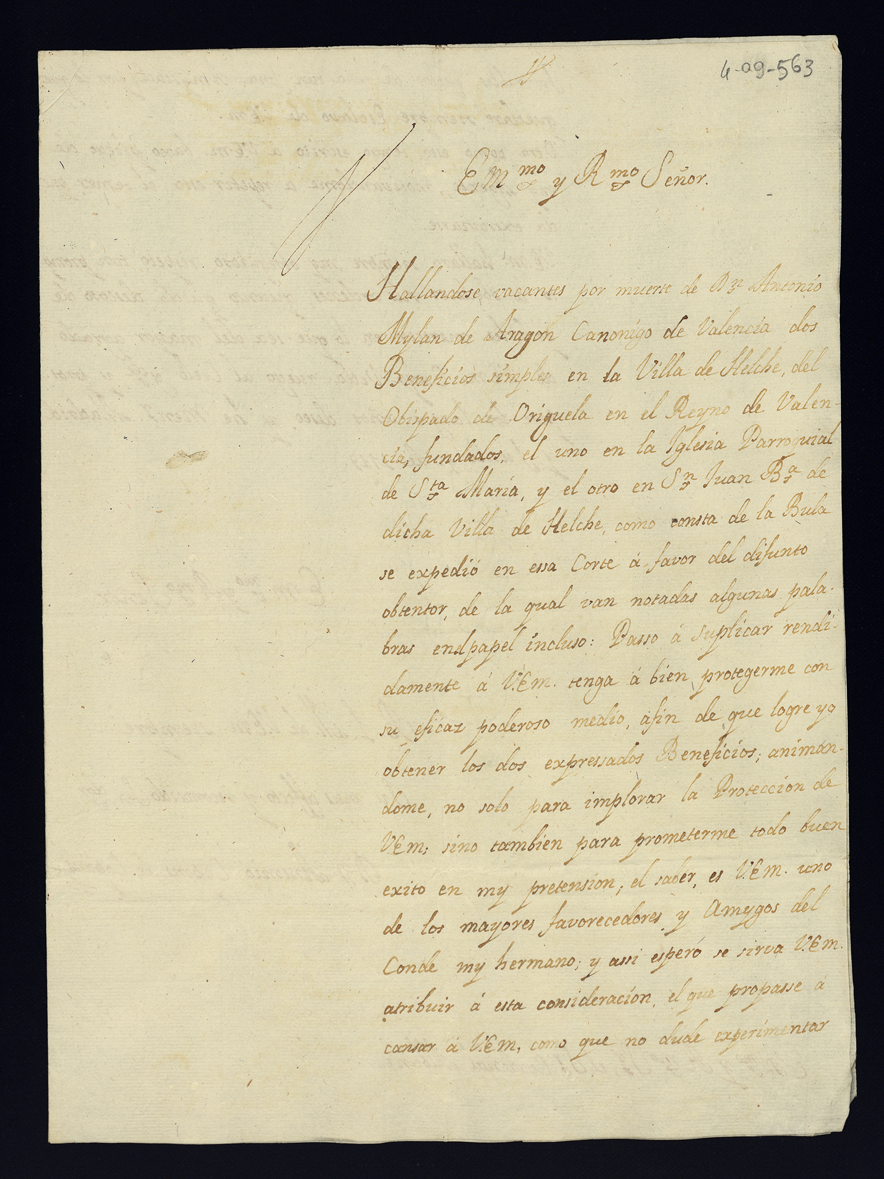 4-09-563
EM.mo y R.mo Señor.
Hallandose, vacantes por muerte de D.n Antonio
Mylan de Aragon Canonigo de Valencia dos
Beneficios simples en la Villa de Helche, del
Obispado de Origuela en el Reyno de Valen-
cia, fundados, el uno en la Iglesia Parroquial
de S.ta Maria, y el otro en S.n Juan B.a de
dicha Villa de Helche, como consta de la Bula
se expedió en essa Corte á favor del difunto
obtentor, de la qual van notadas algunas pala-
bras enelpapel incluso: Passo á suplicar rendi-
damente á V.Em. tenga á bien protegerme con
su eficaz poderoso medio, afin de que logre yo
obtener los dos expressados Beneficios; animan-
dome, no solo para implorar la Proteccion de
V.Em; sino tambien para prometerme todo buen
exito en my pretension; el saber, es V.Em. uno
de los mayores favorecedores, y Amygos del
Conde my hermano; y assi esperó se sirva V.Em.
atribuir á esta consideracion, el que propasse á
cansar á V.Em, como que no dude experimentar